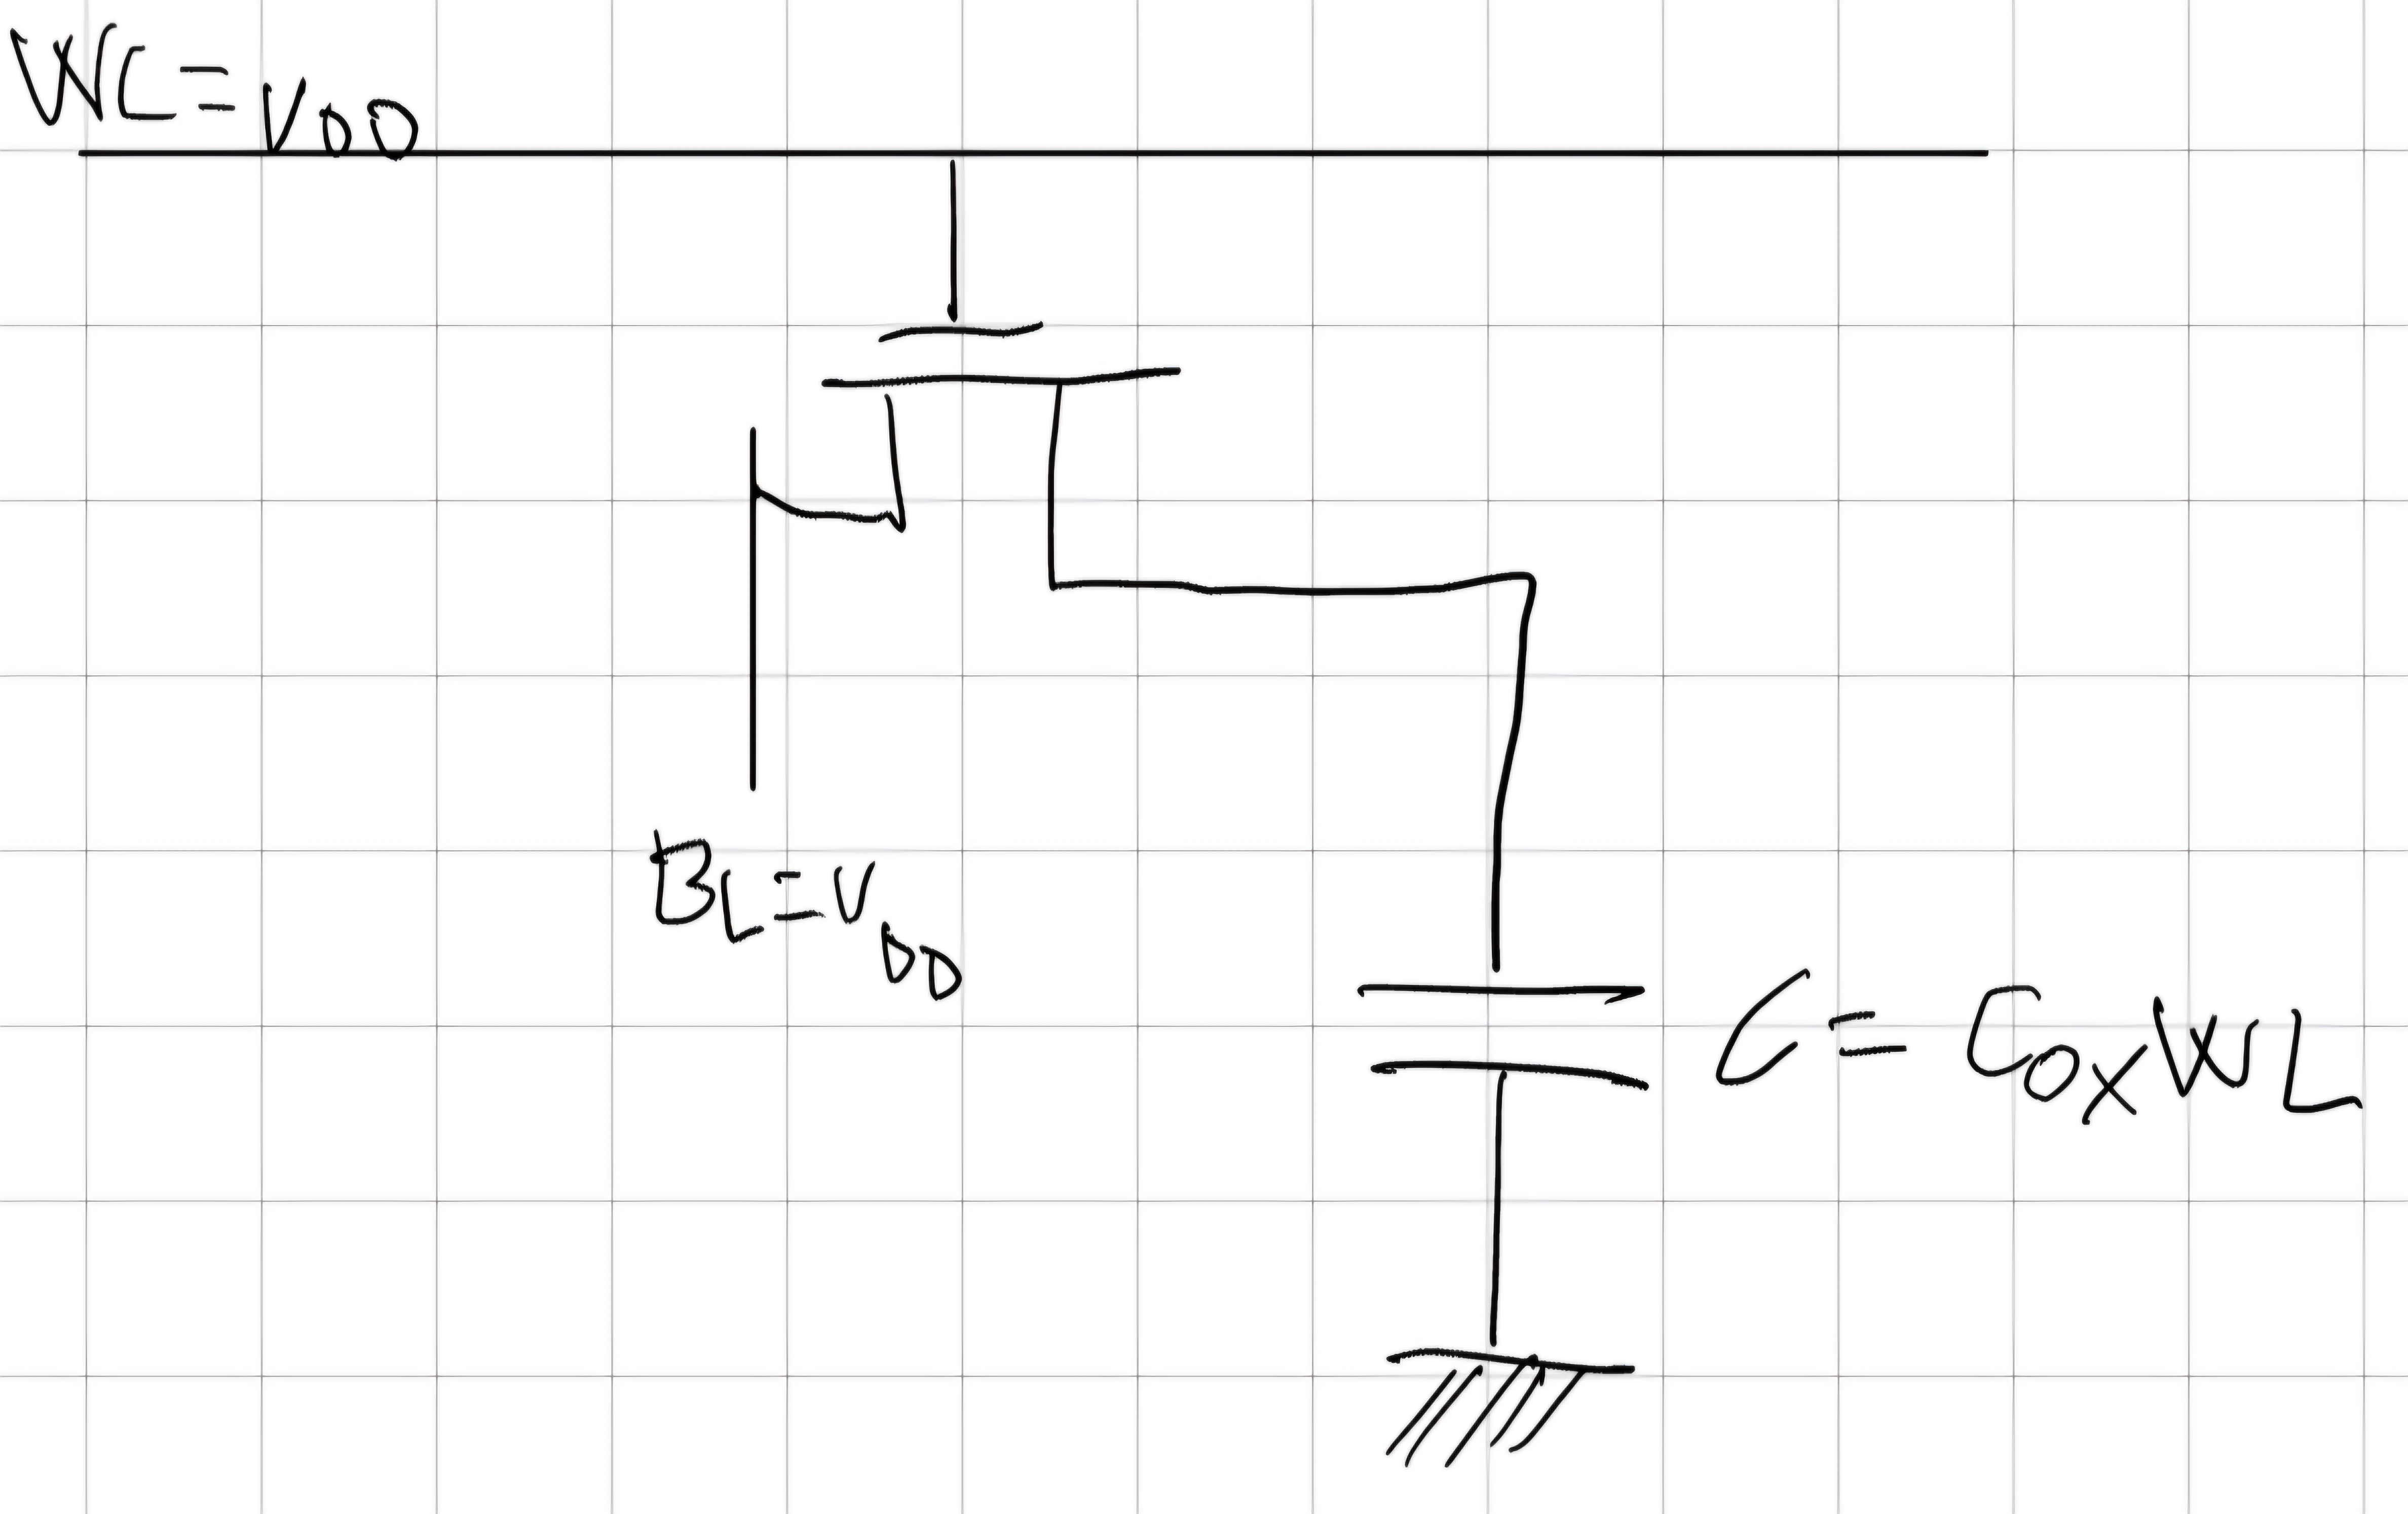 WL=VDD
BL=VDD
C= COXWL